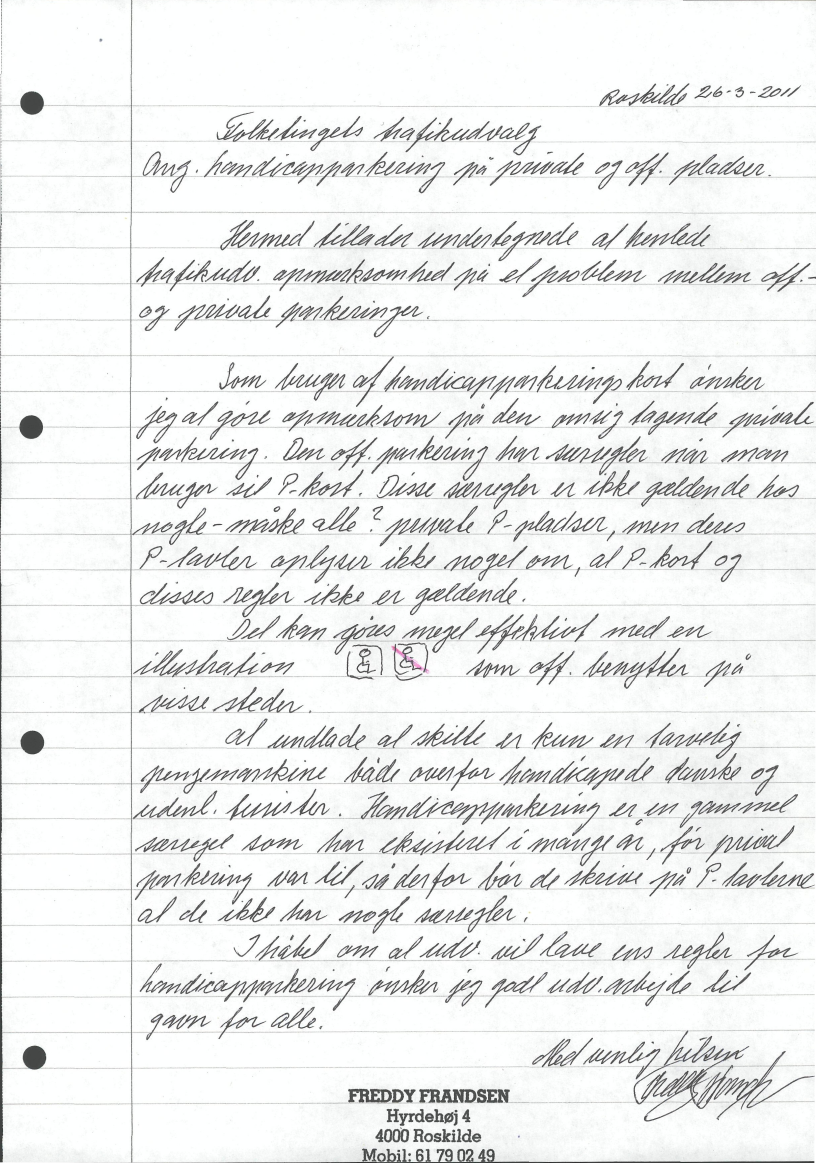 Roskilde 26-3-2011
Folketingets trafikudvalg
Ang. handicapparkering på private og off. pladser.
Hermed tillader undertegnede at henlede
trafikudv. opmærksomhed på et problem mellem off.-
og private parkeringer.
Som bruger af handicapparkeringskort ønsker
jeg at gøre opmærksom på den omsig tagende private
parkering. Den off. parkering har særregler når man
bruger sit P-kort. Disse særregler er ikke gældende hos
nogle-måske alle? private P-pladser, men deres
P-tavler oplyser ikke noget om, at P-kort og
disses regler ikke er gældende.
Det kan gøres meget effektivt med en
illustration som off. benytter på
visse steder.
At undlade at skilte er kun en tarvelig
pengemaskine både overfor handicapede danske og
udenl. turister. Handicapparkering er en gammel
særregel som har eksisteret i mange år, før privat
parkering var til, så derfor bør de skrive på P-tavlerne
at de ikke har nogle særregler.
I håbet om at udv. vil lave ens regler for
handicapparkering ønsker jeg godt udv. arbejde til
gavn for alle.
Med venlig hilsen
FREDDY FRANDSEN
Hyrdehøj 4
4000 Roskilde
Mobil: 61 79 02 49